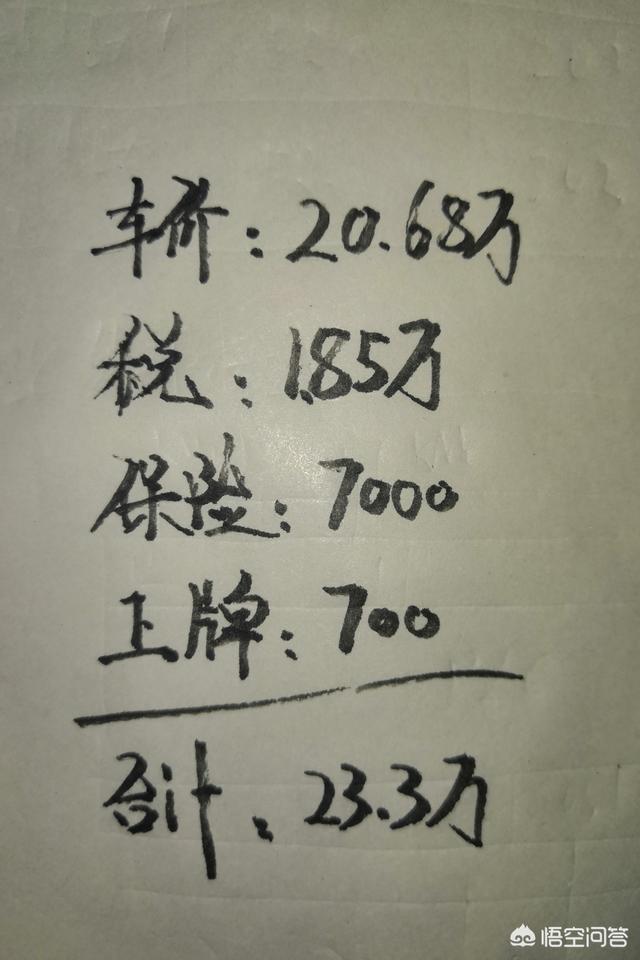 车价：20.68万
税：1.85万
保险：7000
上牌：700
合计：23.3万
悟空问答